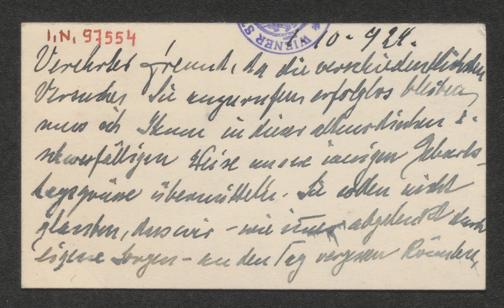 I.N. 97554
WIENER S
10. 924.
Verehrter Freund, da die verschiedentlichen
Versuche, Sie anzurufen erfolglos bleiben
muss ich Ihnen in dieser altmodischen &
schwerfälligen Weise unsere innigen Geburts-
tagsgrüsse übermitteln. Sie sollen nicht
glauben, dass wir - wie immer abgelenkt durch
eigene Sorgen - an den Tag vergessen könnten,